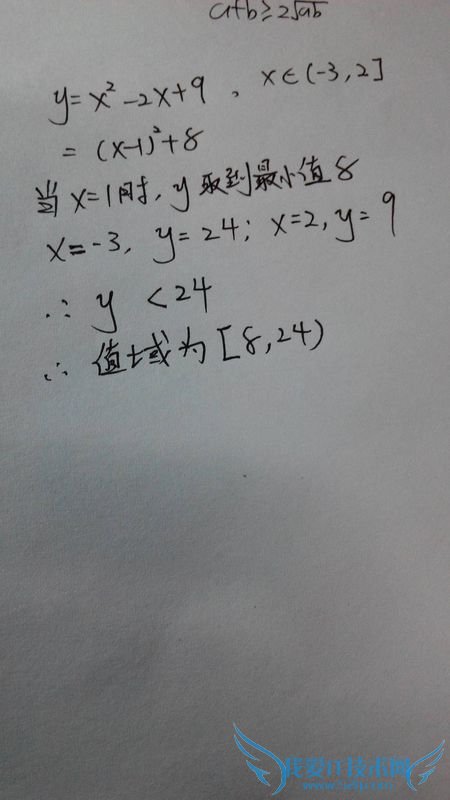 a+b≥2√ab
y=x²-2x+9, x∈(-3,2]
=(x-1)²+8
当x=1时,y取到最小值8
x=-3, y=24; x=2, y=9
∴ y <24
∴ 值域为[8,24)
我爱IT技术网